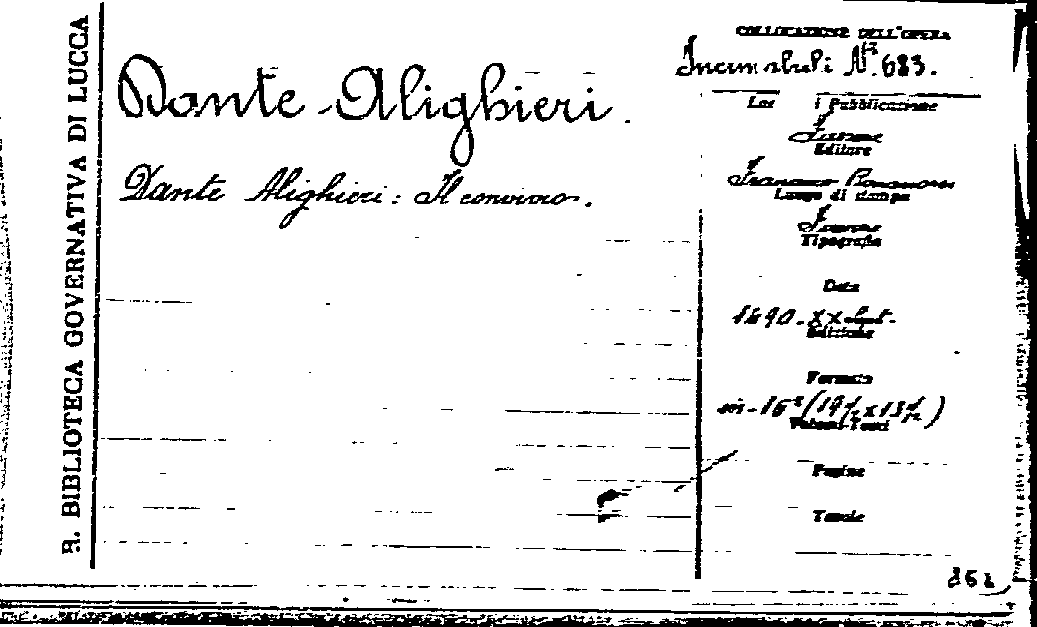 R. BIBLIOTECA GOVERNATIVA DI LUCCA
Dante Alighieri.
Dante Alighieri: Il convivio.
COLLOCAZIONE DELL'OPERA
Incunabuli N° 683.
Luogo di Pubblicazione
Firenze
Editore
Francesco Bonaccorsi
Luogo di stampa
Firenze
Tipografia
Data
1490. XX sept.
Edizione
Formato
in-16°
Volumi-Tomi
Pagine
Tavole